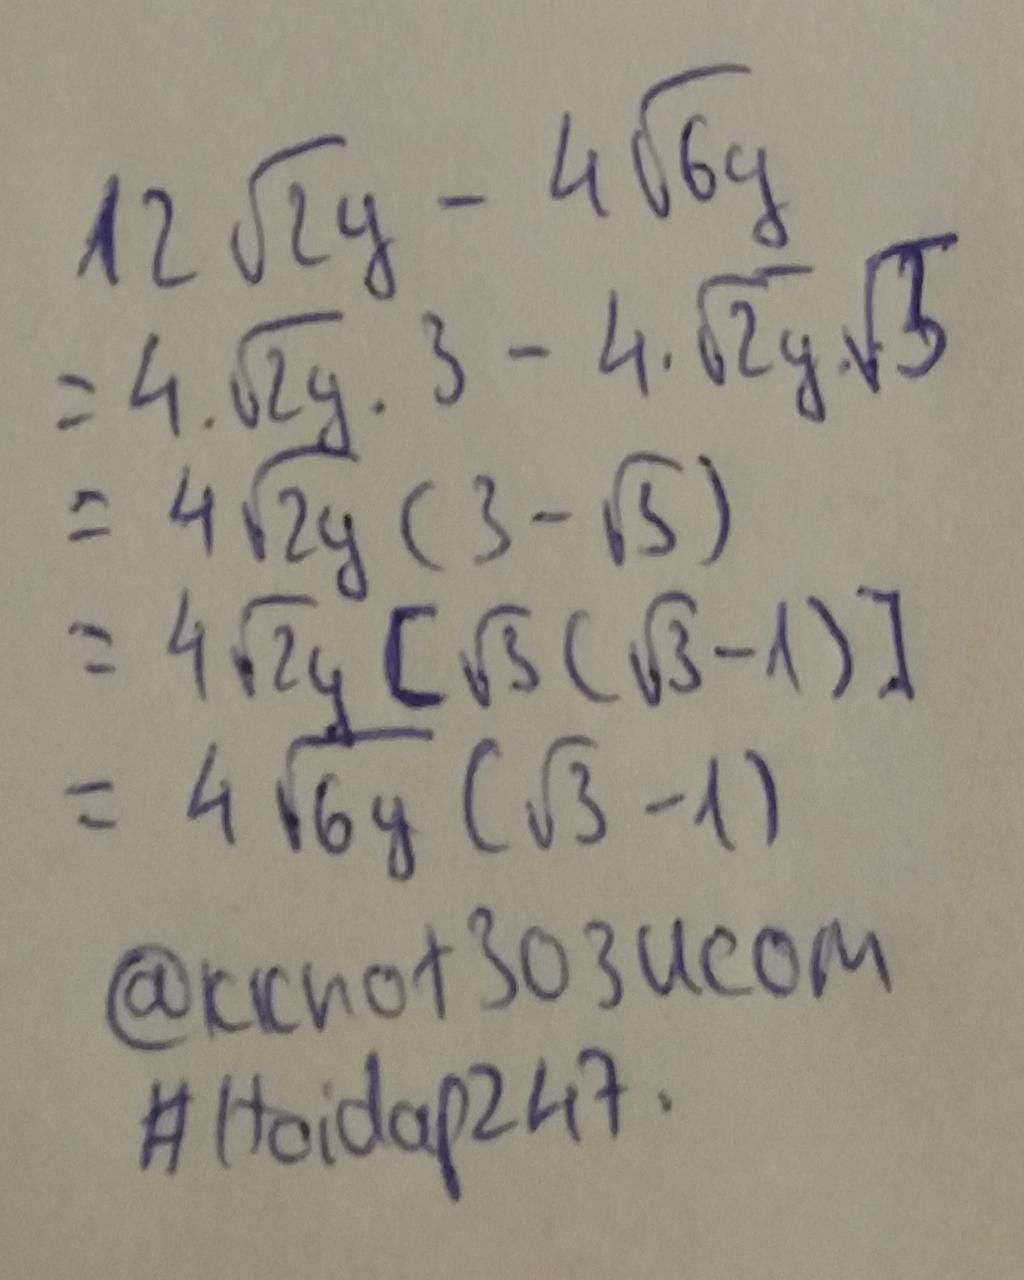 12 √2y - 4√6y
= 4.√2y. 3 - 4.√2y.√3
= 4√2y ( 3-√3)
= 4√2y [√3(√3-1)]
= 4 √6y (√3-1)
@kknot303ucom
#Hoidap247.